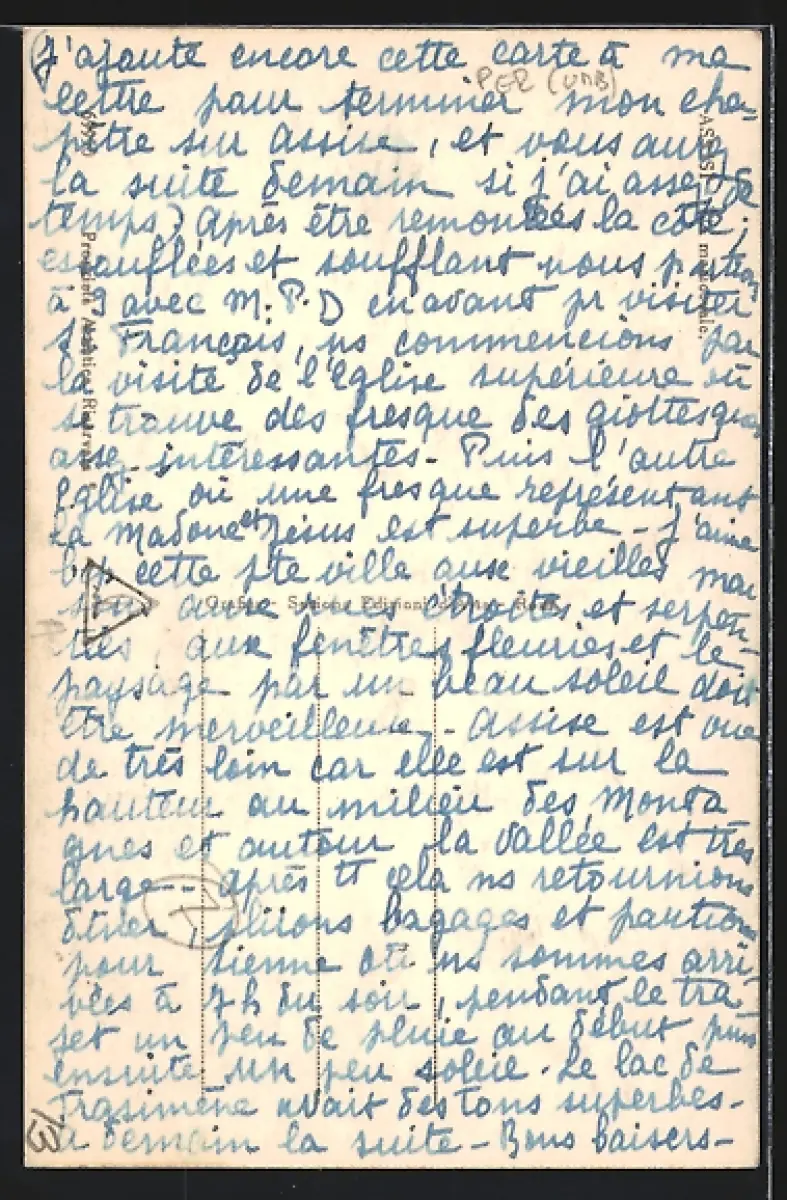 (J'ajoute encore cette carte à ma
lettre pour terminer mon cha-
pitre sur Assise, et vous aurez
la suite demain si j'ai assez de
temps) Après être remontées la côte,
essouflées et soufflant nous partions
à 9 avec M. P. D en avant pr visiter
St François, ns commencions par
la visite de l'Eglise supérieure où
se trouve des fresque des giottesques
assez intéressantes - Puis l'autre
Eglise où une fresque représentant
la Madone et Jésus est superbe - J'aime
bcp cette pte ville aux vieilles mai
sons aux rues étroites et serpen
tées, aux fenêtres fleuries et le
paysage par un beau soleil doit
être merveilleux - Assise est vue
de très loin car elle est sur la
hauteur au milieu des Monta
gnes et autour la Vallée est très
large - Après tt cela ns retournions
dîner, bagages et partions
pour Sienne où ns sommes arri
vées à 7 h du soir, pendant le tra
jet un peu de pluie au début puis
ensuite un peu soleil. Le lac de
Trasimène avait des tons superbes -
A demain la suite - Bons baisers -
PER (UMB)
ASSISI
Proprietà Artistica Riservata
12
13